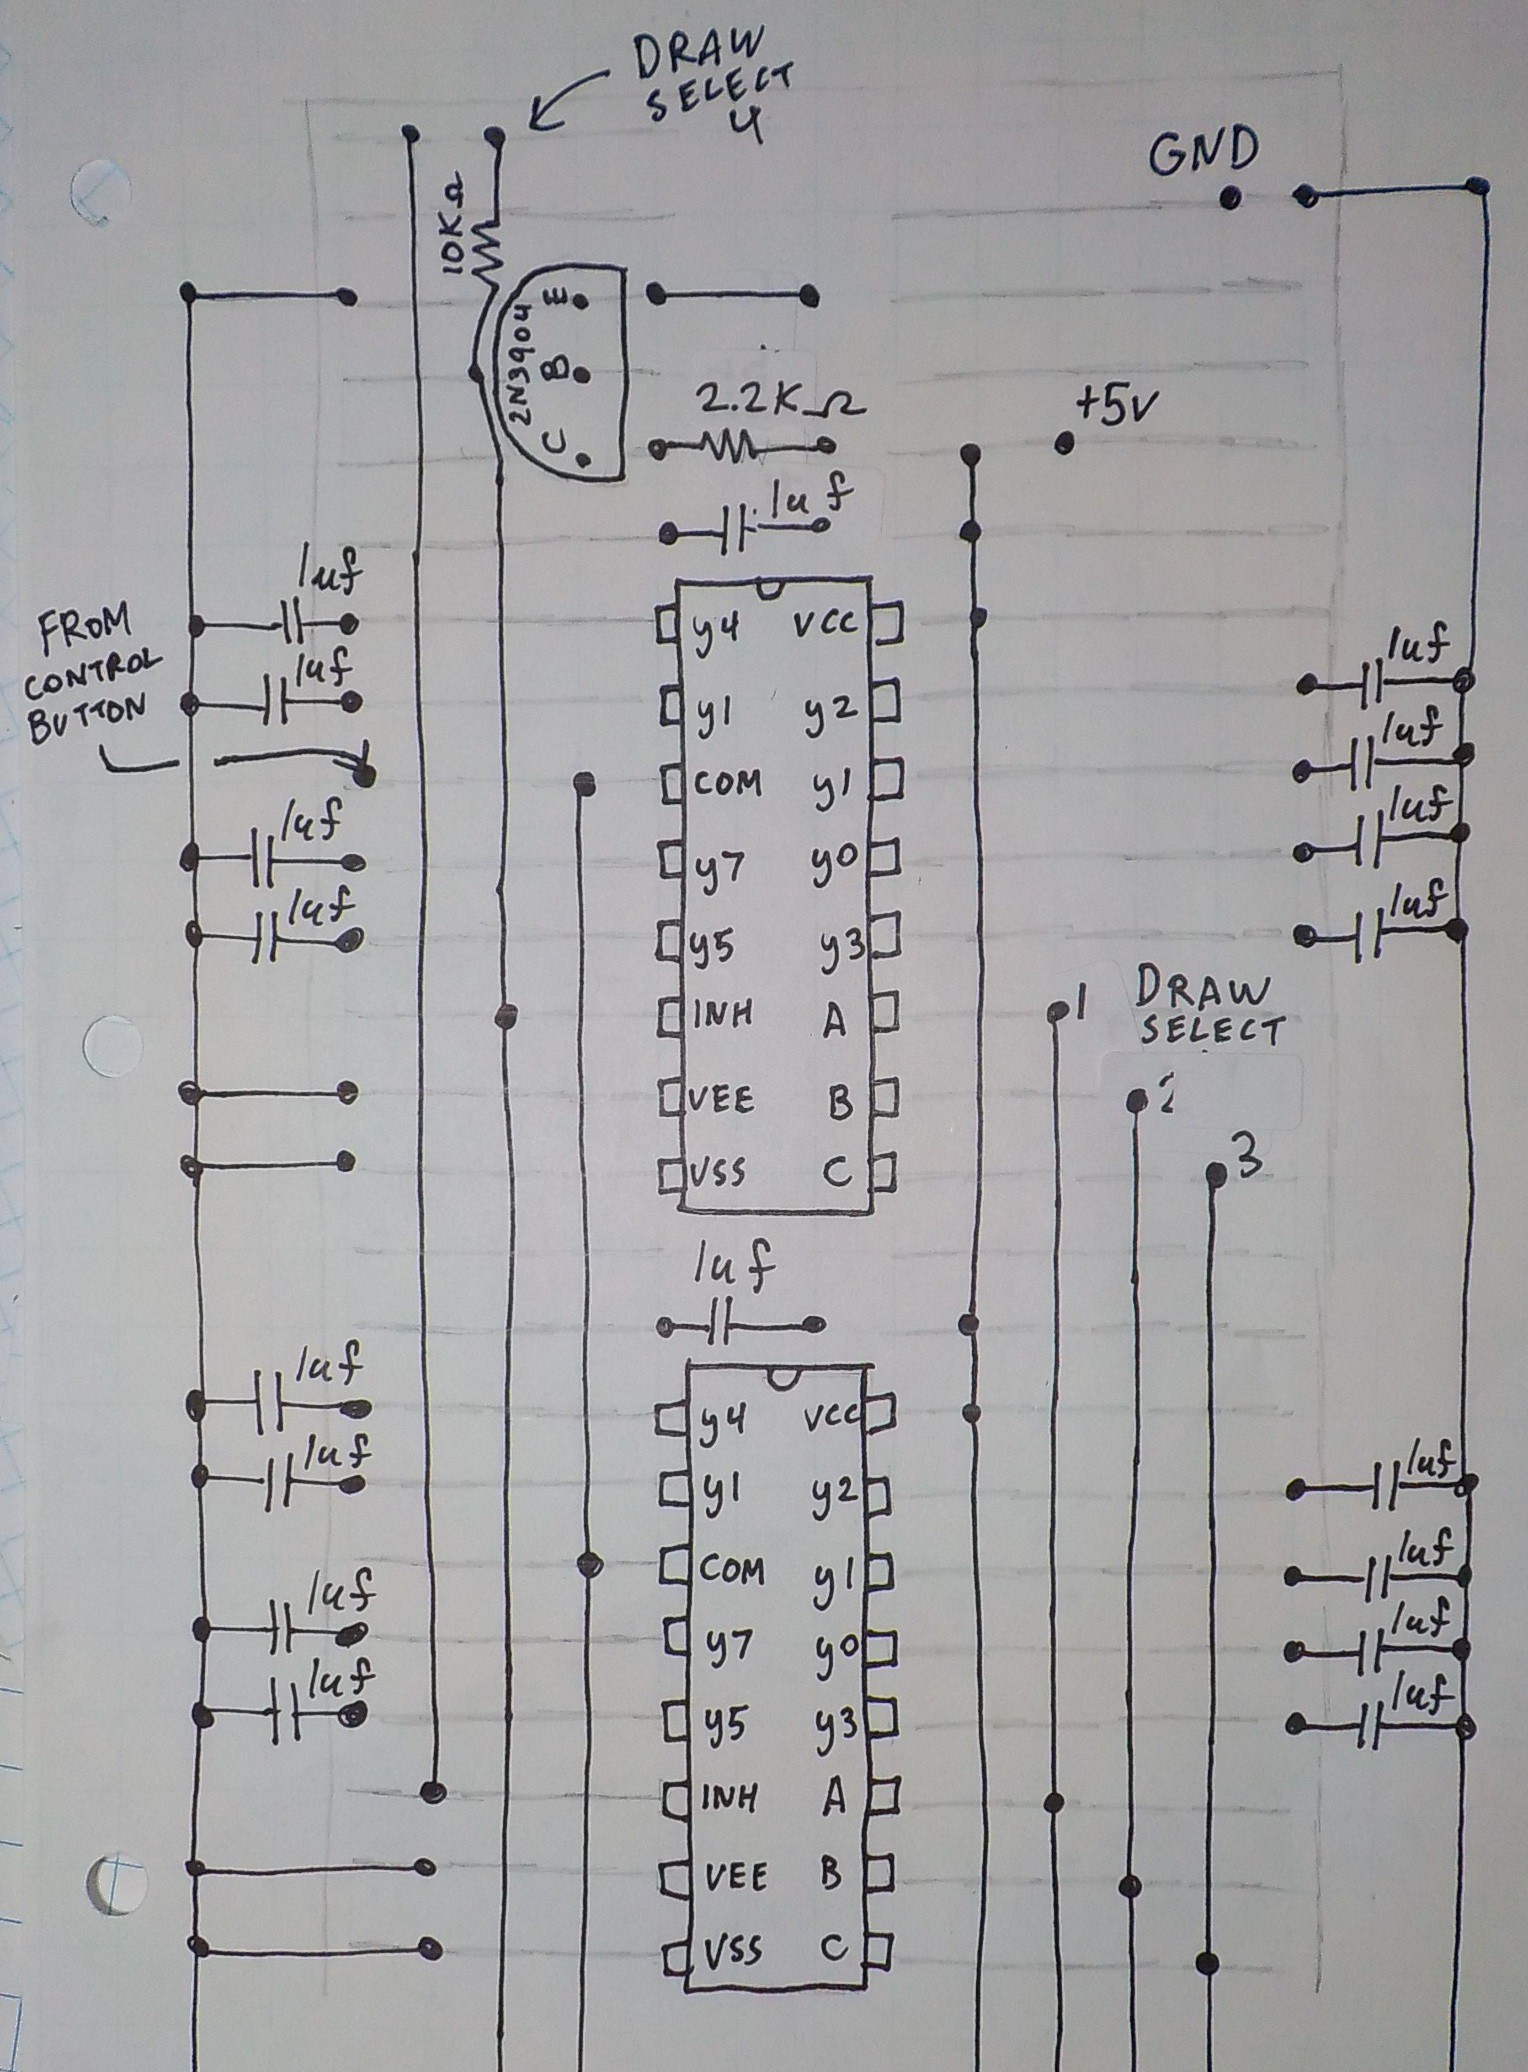 DRAW
SELECT
4
GND
10KΩ
2N3904
E
B
C
2.2KΩ
+5v
1uf
1uf
1uf
FROM
CONTROL
BUTTON
y4 VCC
y1 y2
COM y1
y7 y0
y5 y3
INH A
VEE B
VSS C
1uf
1uf
1uf
1uf
1uf
1uf
1
DRAW
SELECT
2
3
1uf
1uf
1uf
1uf
1uf
y4 VCC
y1 y2
COM y1
y7 y0
y5 y3
INH A
VEE B
VSS C
1uf
1uf
1uf
1uf